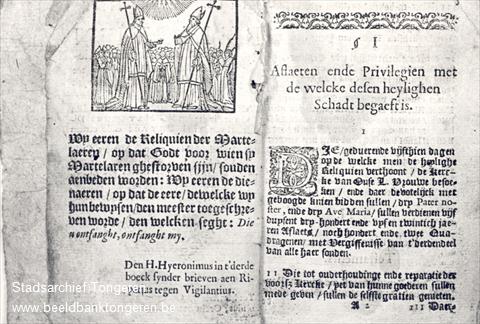 Wy eeren de Reliquien der Marte-
laeren / op dat Godt voor wien sy
Martelaren ghestorven sijn / souden
aenbeden worden: Wy eeren de die-
naeren / op dat de eere / de welcke wy
hun bewysen / den meester toegeschre-
ven worde / den welcken seght: Die
u ontfanght, ontfanght my.
Den H. Hyeronimus in t'derde
boeck synder brieven aen Ri-
tegen Vigilantius.
§ I
Aflaeten ende Privilegien met
de welcke desen heylighen
Schadt begaeft is.
I
DIE / geduerende vijfthien dagen
op de welcke men de heylighe
Reliquien verthoont / de Kerc-
ke van Onse L. Vrouw besoec-
ken / ende daer devotelijck met
geboogde knien bidden sullen / dry Pater no-
ster, ende dry Ave Maria / sullen verdienen vijf
duysent dry-hondert ende vysen twintich jaeren
Aflaets / noch hondert ende twee Qua-
dragenen / met Vergiffenisse van t'derdendeel
van alle haer sonden.
II Die tot onderhoudinge ende reparatie der
voorsz Kercke / yet van hunne goederen sullen
mede geven / sullen de selfste gratien genieten.
A 2 III Daer
Stadsarchief Tongeren
www.beeldbanktongeren.be